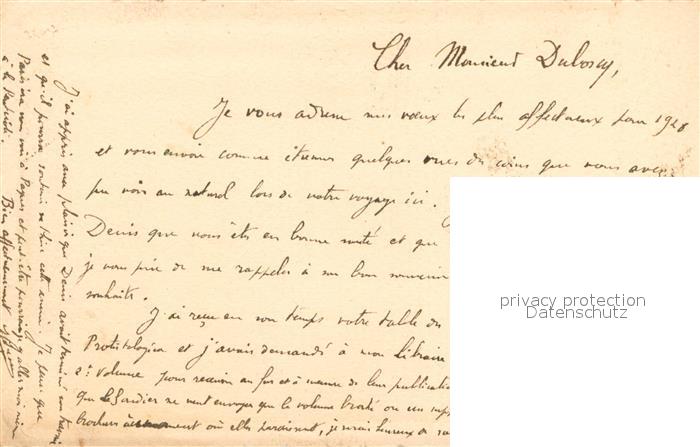 Cher Monsieur Duboscq,
Je vous adresse mes vœux les plus affectueux pour 1928
et vous envoie comme étrennes quelques vues des coins que vous avez
pu voir au naturel lors de votre voyage ici.
Denis que vous êtes en bonne santé et que
je vous prie de me rappeler à son bon souvenir
souhaits.
J'ai reçu en son temps votre table du
Protistologica et j'avais demandé à mon libraire
2e volume pour recevoir au fur et à mesure de leur publication
que Le Soudier ne veut envoyer que le volume broché ou un
brochures au moment où elles paraissent, je serais heureux de
J'ai appris avec plaisir que Denis avait terminé son travail
et qu'il pourra soutenir sa thèse cette année. Je pense que
Paris me verra à Pâques et peut-être pourrai-je aller vous voir
à la
Bien affectueusement
privacy protection
Datenschutz